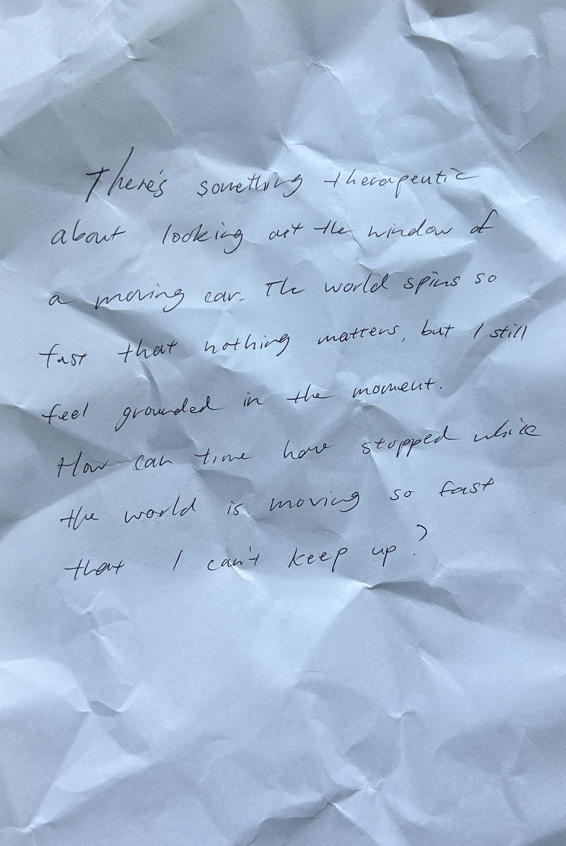 There's something therapeutic
about looking out the window of
a moving car. The world spins so
fast that nothing matters, but I still
feel grounded in the moment.
How can time have stopped while
the world is moving so fast
that I can't keep up?